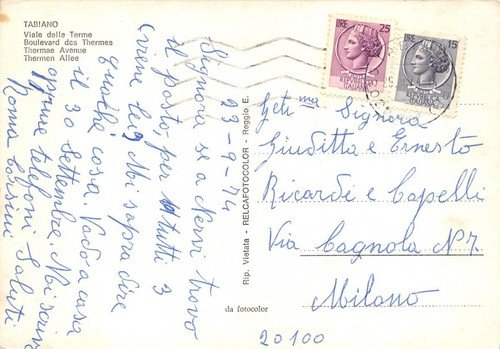 TABIANO
Viale delle Terme
Boulevard des Thermes
Thermae Avenue
Thermen Allee
LIRE 25
LIRE 15
23-9-74
Signora se a Nervi trovo
il posto per tutti 3
viene lei? Mi sapra dire
qualche cosa. Vado a casa
il 30 Settembre. Mi scriva
oppure telefoni Saluti
Roma Corsini
Rip. Vietata - RELCAFOTOCOLOR - Reggio E.
da fotocolor
Gent ma Signora
Giuditta e Ernesto
Ricardi e Capelli
Via Cagnola N 7
Milano
20100